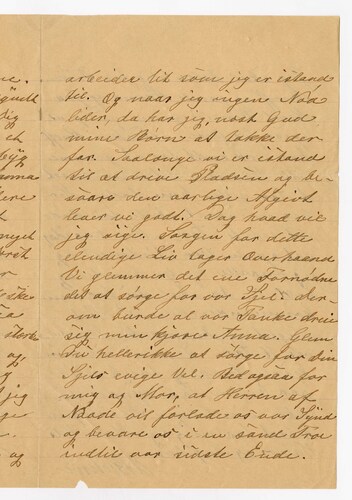 arbeider lit som jeg er istand
til. Og naar jeg ingen Nød
lider, da har jeg, nøst Gud
mine Børn at takke der-
for. Saalenge vi er istand
til at drive Pladsen og be-
svare den aarlige Afgivt
leier vi godt. Dog hvad vil
jeg sige. Sorgen for dette
elendige Liv tager Overhaand
Vi glemmer det ene Fornødne
det at sørge for vor Sjel. Der-
om burde al vor Tanke dreie
sig min kjære Anna. Glem
Du hellerikke at sørge for din
Sjels evige Vel. Bed ogsaa for
mig og Mor, at Herren af
Naade vil forlade os vor Synd
og bevare os i en sand Tro
indtil vor sidste Ende.